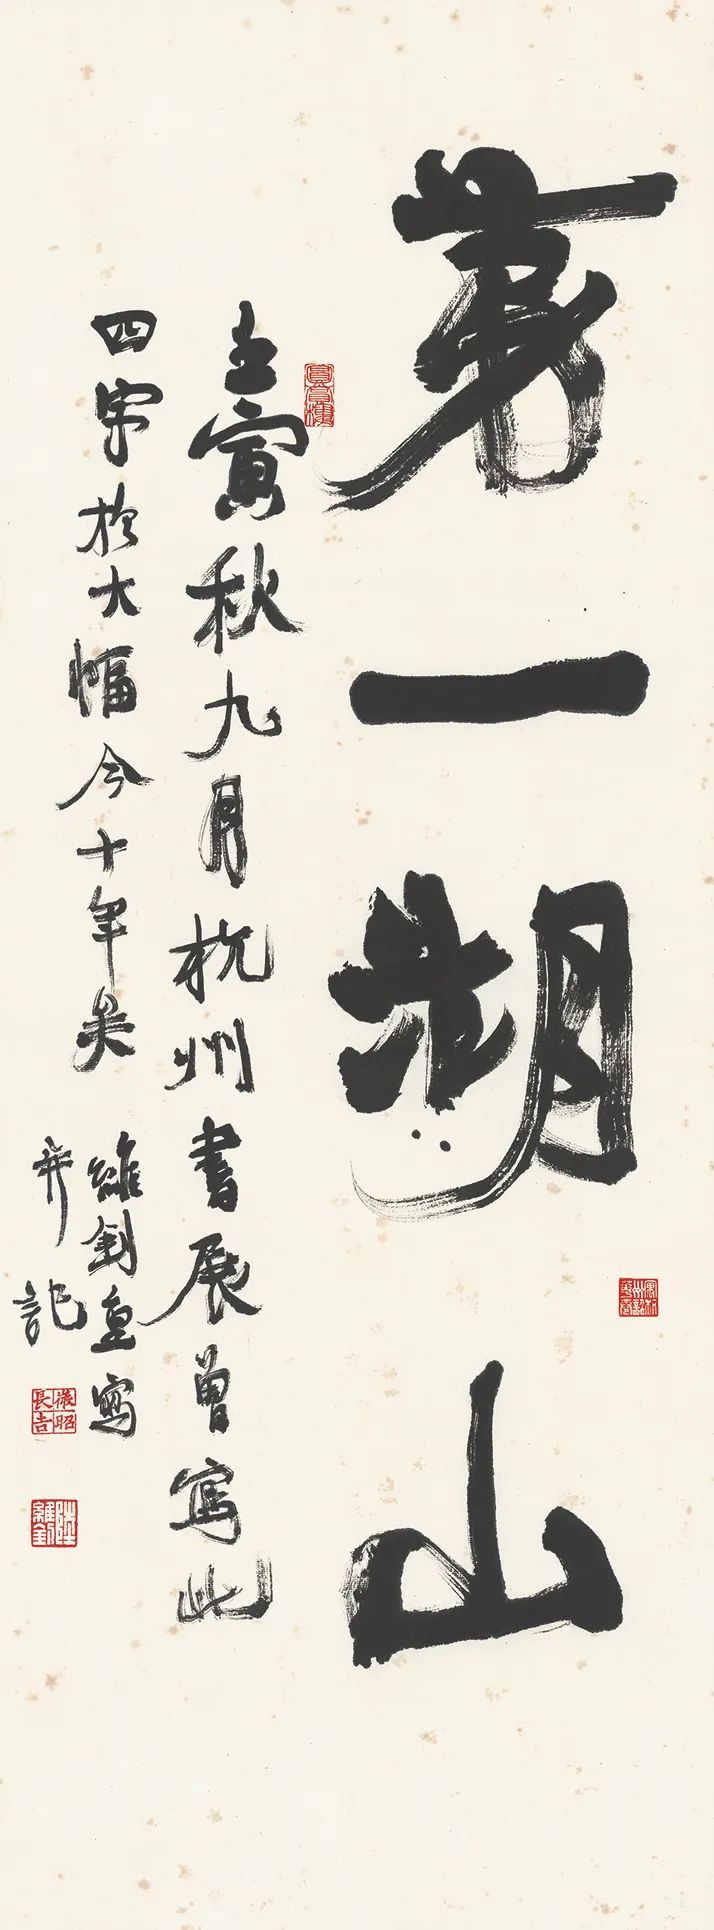 第一湖山
壬寅秋九月杭州书展曾写此
四字於大幅今十年矣
維釗重寫
并記
陸維釗